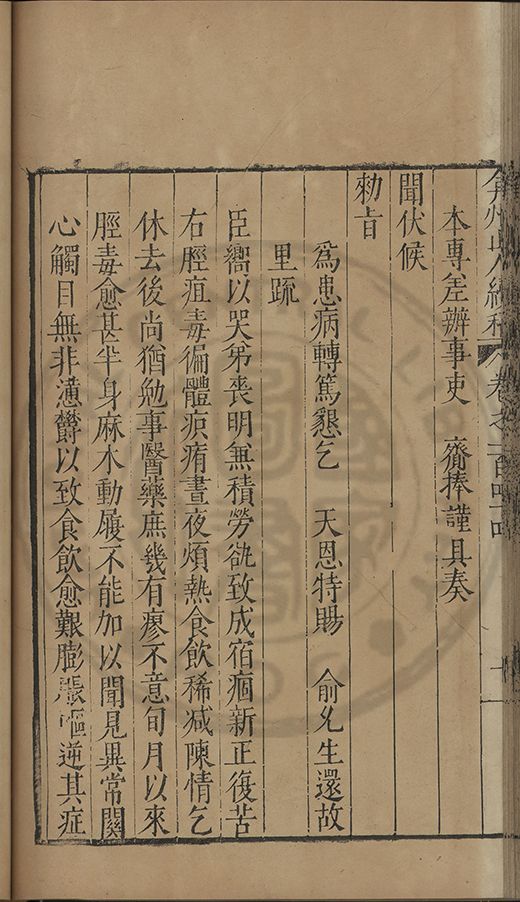 弇州山人續稿 卷之一百四
本專差辦事吏 齎捧謹具奏
聞伏候
勅旨
爲患病轉篤懇乞 天恩特賜 俞允生還故
里疏
臣嚮以哭弟喪明無積勞欲致成宿痼新正復苦
右脛疽毒徧體疻痏晝夜煩熱食飲稀減陳情乞
休去後尚猶勉事醫藥庶幾有瘳不意旬月以來
脛毒愈甚半身麻木動履不能加以聞見異常關
心觸目無非懣欝以致食飲愈艱膨脹嘔逆其症